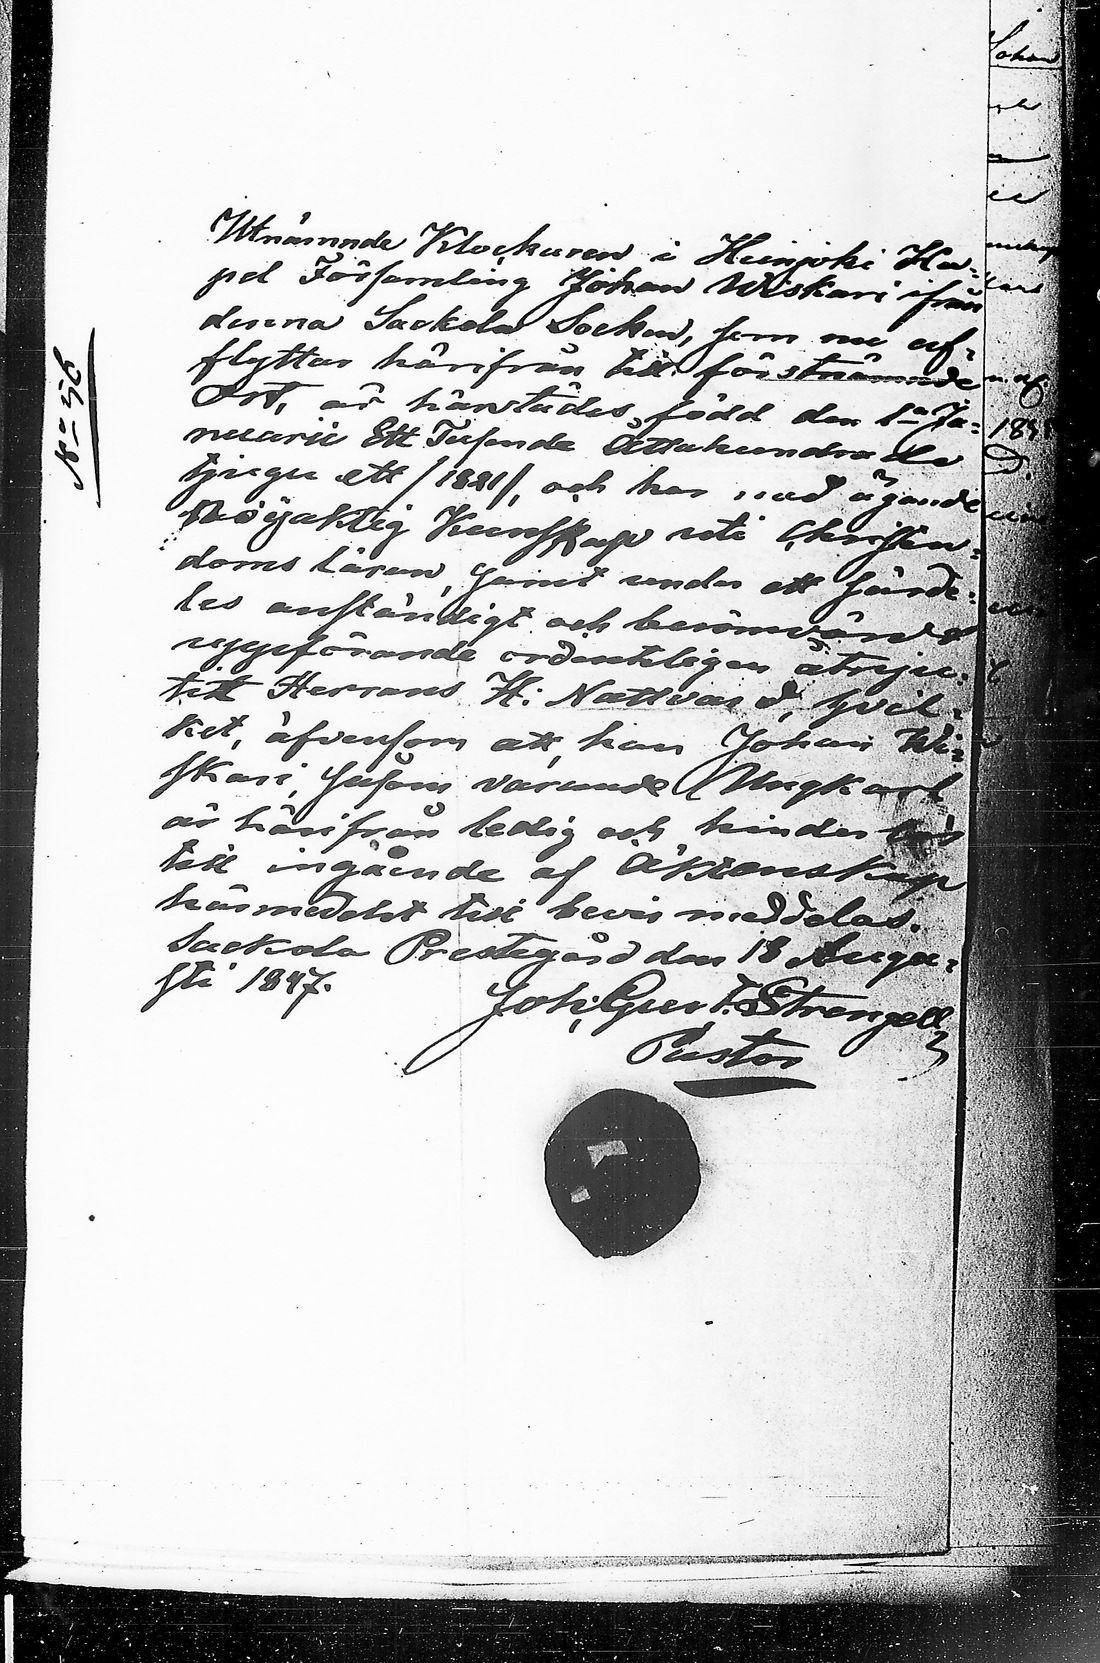 No 56
Utnämnde Klockaren i Heinjoki Ka-
pel Församling Johan Wiskari ifrån
denna Sackola Socken, som nu af-
flyttar härifrån till förstnämnde
Ort, är härstädes född den 1a Ja-
nuarii Ett Tusende Åttahundrade
tjugu ett /1821/, och har med ägande
Nöjaktig Kunskap uti Christen-
doms läran, samt under ett särde-
les anständigt och berömvärdt
uppförande ordenteligen åtnju-
tit Herrans H: Nattvard, hvil-
ket, äfvensom att han Johan Wi-
skari, såsom varande Ungkarl
är härifrån ledig och hinders lös
till ingående af Äktenskap
härmedelst till bevis meddelas.
Sackola Prestegård den 18 Augu-
sti 1847.
Joh: Gust. F. Strengell
Pastor
Johan